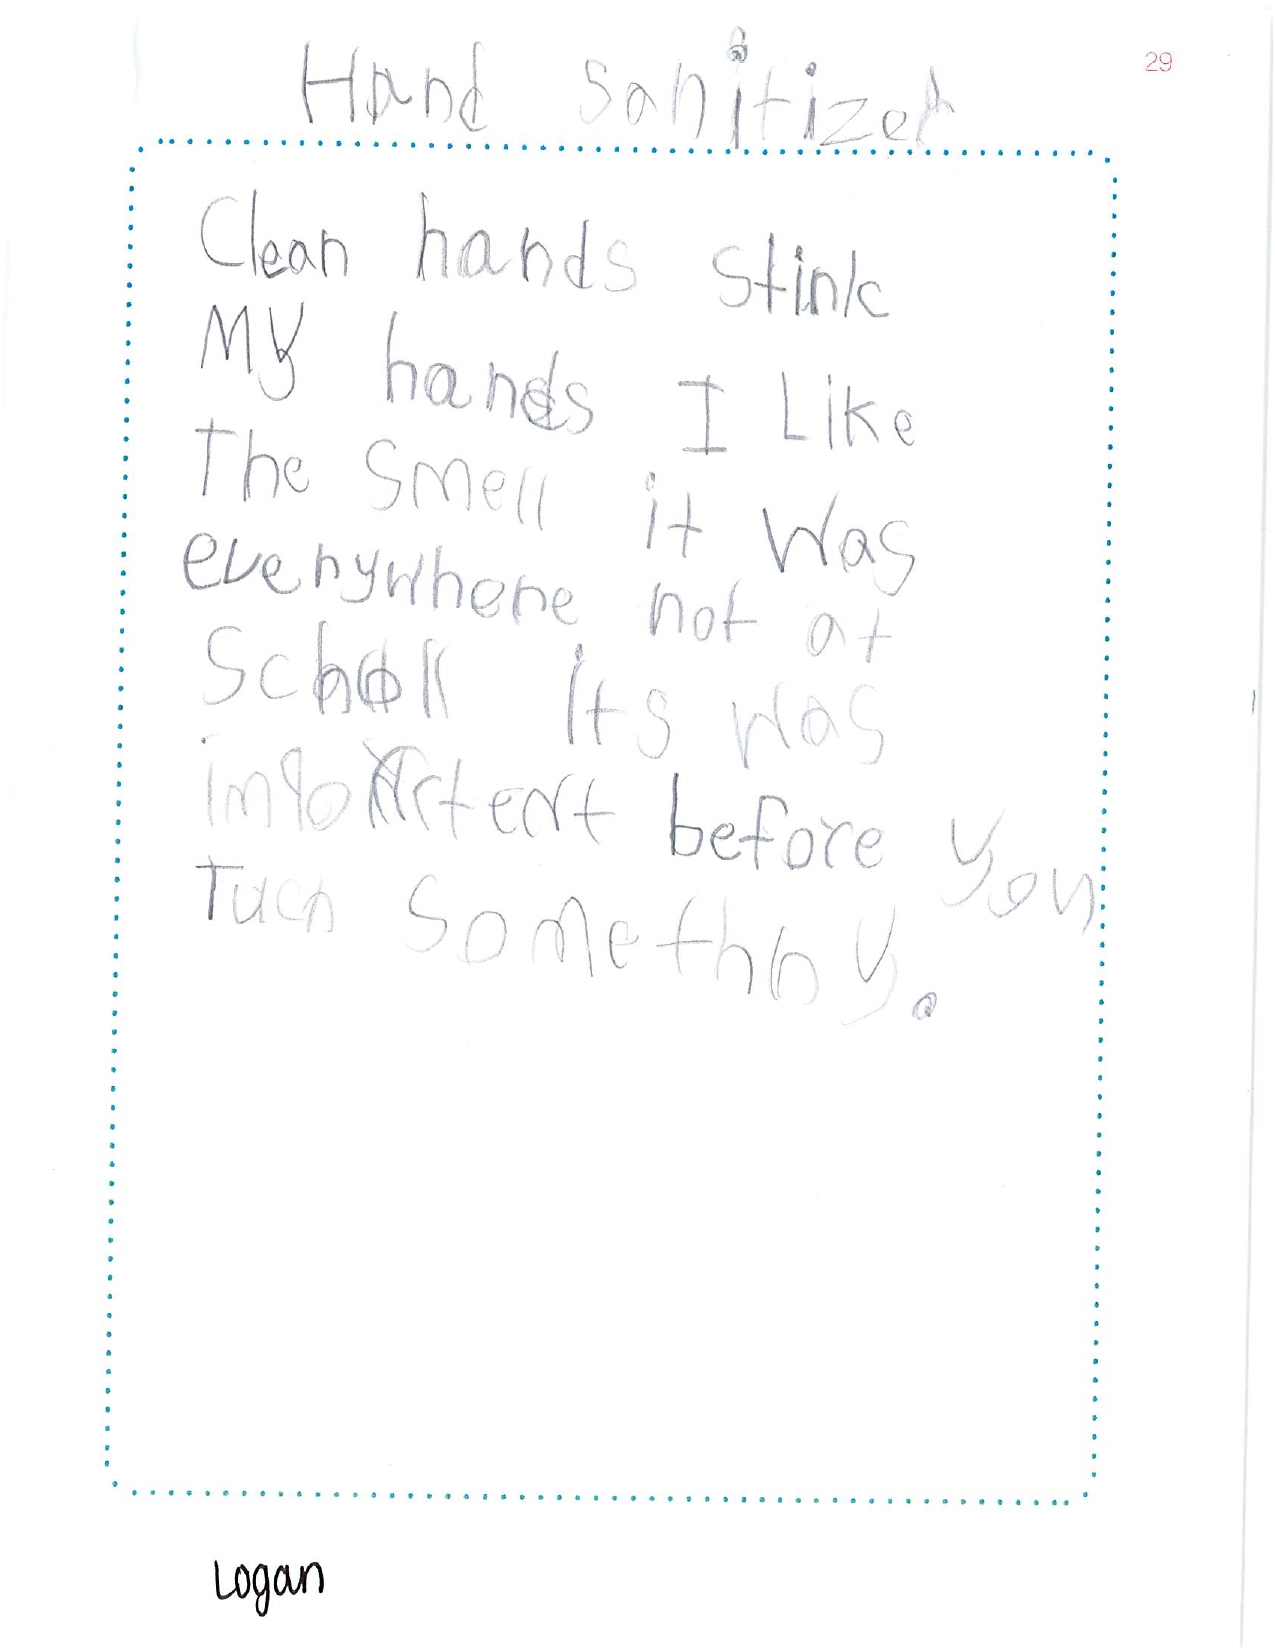 29
Hand Sanitizer
Clean hands stink
My hands I Like
The Smell it Was
everywhere not at
Scholl its was
important before you
Tuch Somethny.
Logan